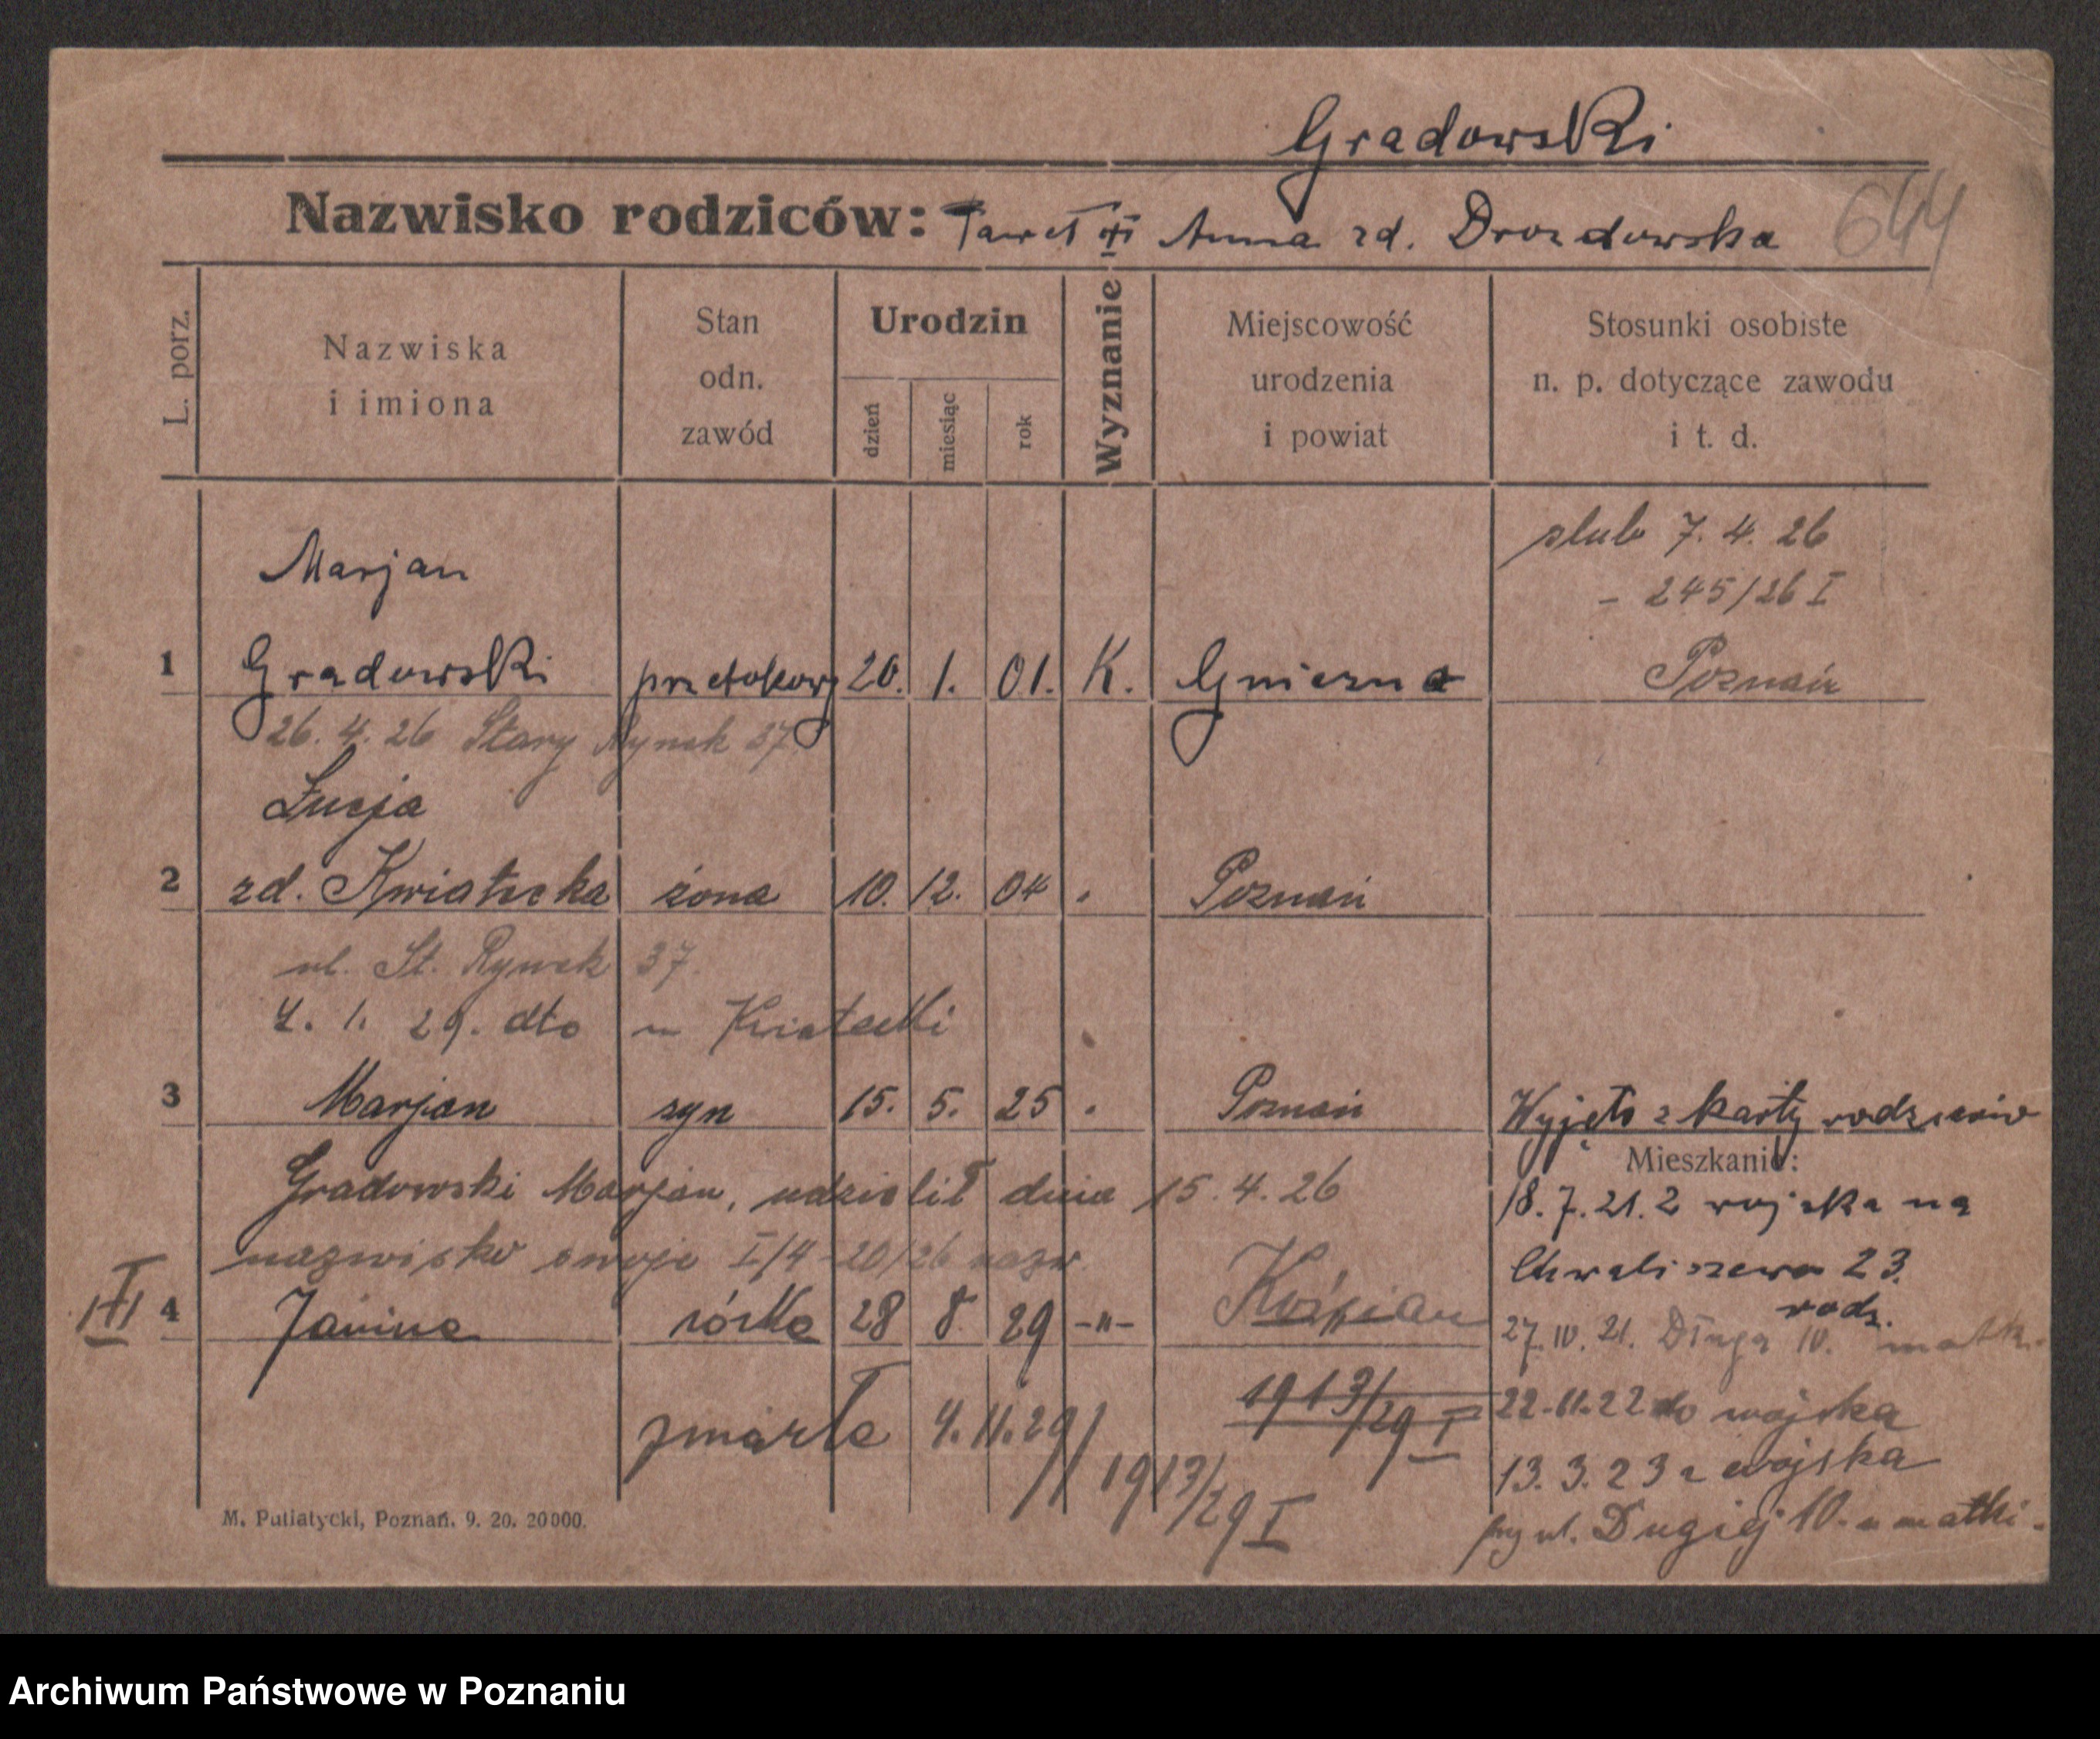 Gradowski
Nazwisko rodziców: Paweł i Anna zd. Drozdowska 644
L. porz.
Nazwiska
i imiona
Stan
odn.
zawód
Urodzin
dzień
miesiąc
rok
Wyznanie
Miejscowość
urodzenia
i powiat
Stosunki osobiste
n. p. dotyczące zawodu
i t. d.
ślub 7. 4. 26
Marjan
- 245/26 I
1 Gradowski przetokowy 20. 1. 01. K. Gniezno Poznań
26. 4. 26 Stary Rynek 37.
Łucja
2 zd. Kwiatecka żona 10. 12. 04 Poznań
ul. St. Rynek 37.
4. 1. 29. dto
3 Marjan syn 15. 5. 25 Poznań Wyjęto z karty rodziców
Mieszkanie:
Gradowski Marjan, udzielił dnia 15. 4. 26
18. 7. 21. z wojska na
nazwisko swoje I/4-20/26 nazw
Chwaliszewo 23.
rodz.
III 4 Janina córka 28 8 29 -"-
27. 10. 21. Długa 10. matk.
1913/29 I
22.11.22 do wojska
zmarła 4. 11. 29
13. 3. 23 z wojska
1913/29 I
przy ul. Dugiej 10. u matki.
M. Putiatycki, Poznań. 9. 20. 20000.
Archiwum Państwowe w Poznaniu